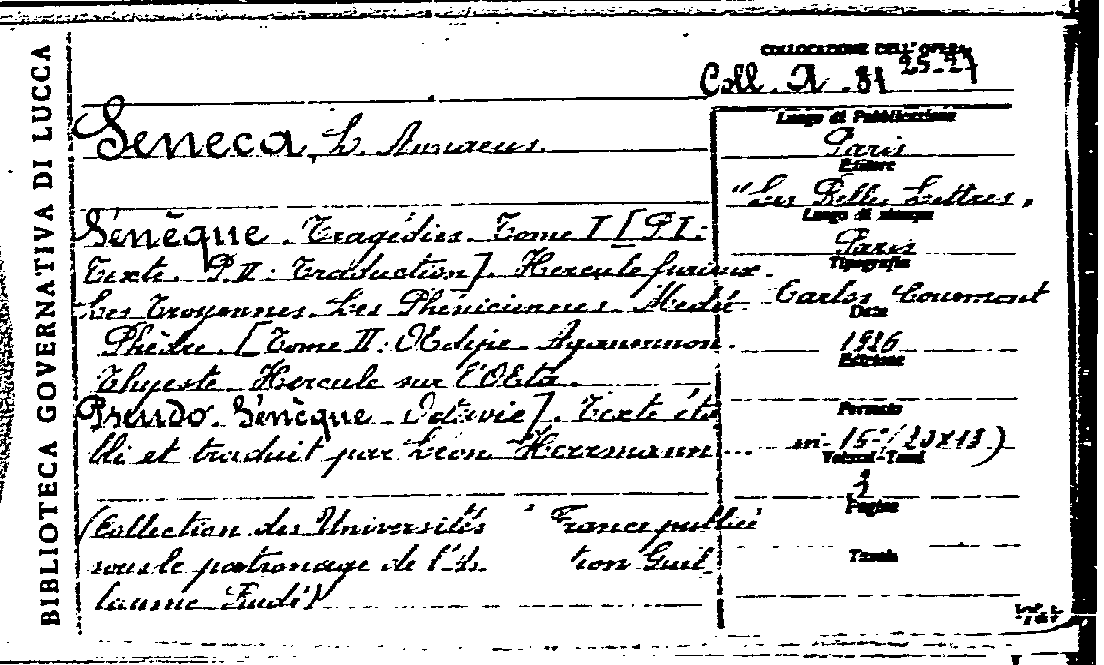 BIBLIOTECA GOVERNATIVA DI LUCCA
COLLOCAZIONE DELL'OPERA
Coll. A. 81 25-27
Seneca, L. Annaeus.
Sénèque. Tragédies. Tome I [P I:
Texte. P. II: Traduction]. Hercule furieux.
Les Troyennes. Les Phéniciennes. Medé
Phèdre. [Tome II: OEdipe. Agamemnon.
Thyeste. Hercule sur l'OEta.
Pseudo. Sénèque Octavie]. Texte éta
bli et traduit par Léon Herrmann
(Collection des Universités France publié
sous le patronage de l'As tion Guil
laume Budé)
Luogo di Pubblicazione
Paris
Editore
"Les Belles Lettres"
Luogo di stampa
Paris
Tipografia
Carlos Courmont
Data
1926
Edizione
Formato
in-15° (20x13)
Volumi-Tomi
Pagine
Tavole